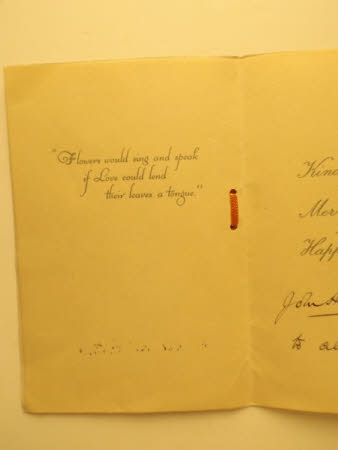 "Flowers would sing and speak
if Love could lend
their leaves a tongue."
Kind
Mer
Happ
John
to